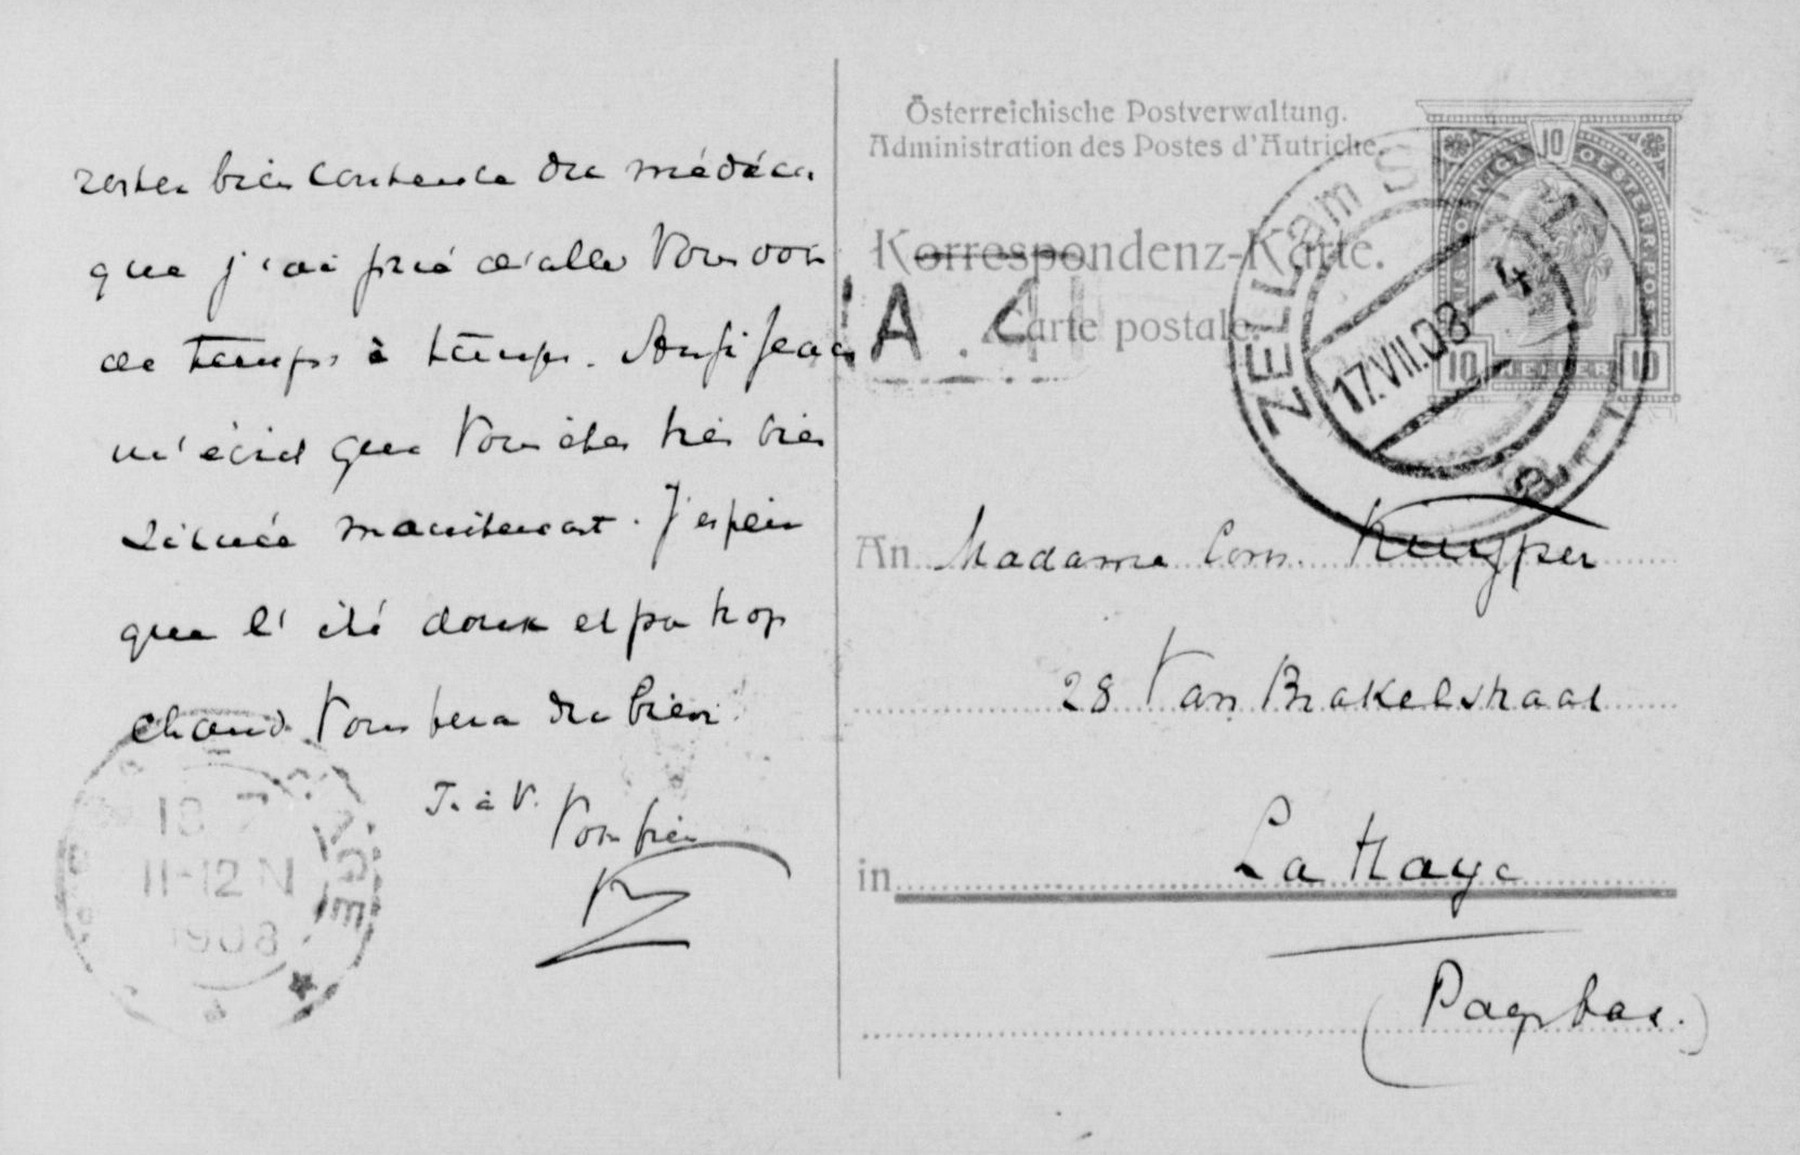 restez bien contente du médécin
que j'ai prié d'aller Vous voir
de temps à temps. Aussi Jean
m'écrit que Vous êtes très bien
située maintenant. J'espère
que l'été doux et pas trop
chaud Vous fera du bien.
T. à V.
18 7
11-12 N
1908
Österreichische Postverwaltung.
Administration des Postes d'Autriche.
Korrespondenz-Karte.
Carte postale.
A. 41
ZELL am S
17.VII.08-4
10
10 HELLER 10
An Madame Corn. Kuyper
28 Van Brakelstraat
in La Haye
(Pays bas.)